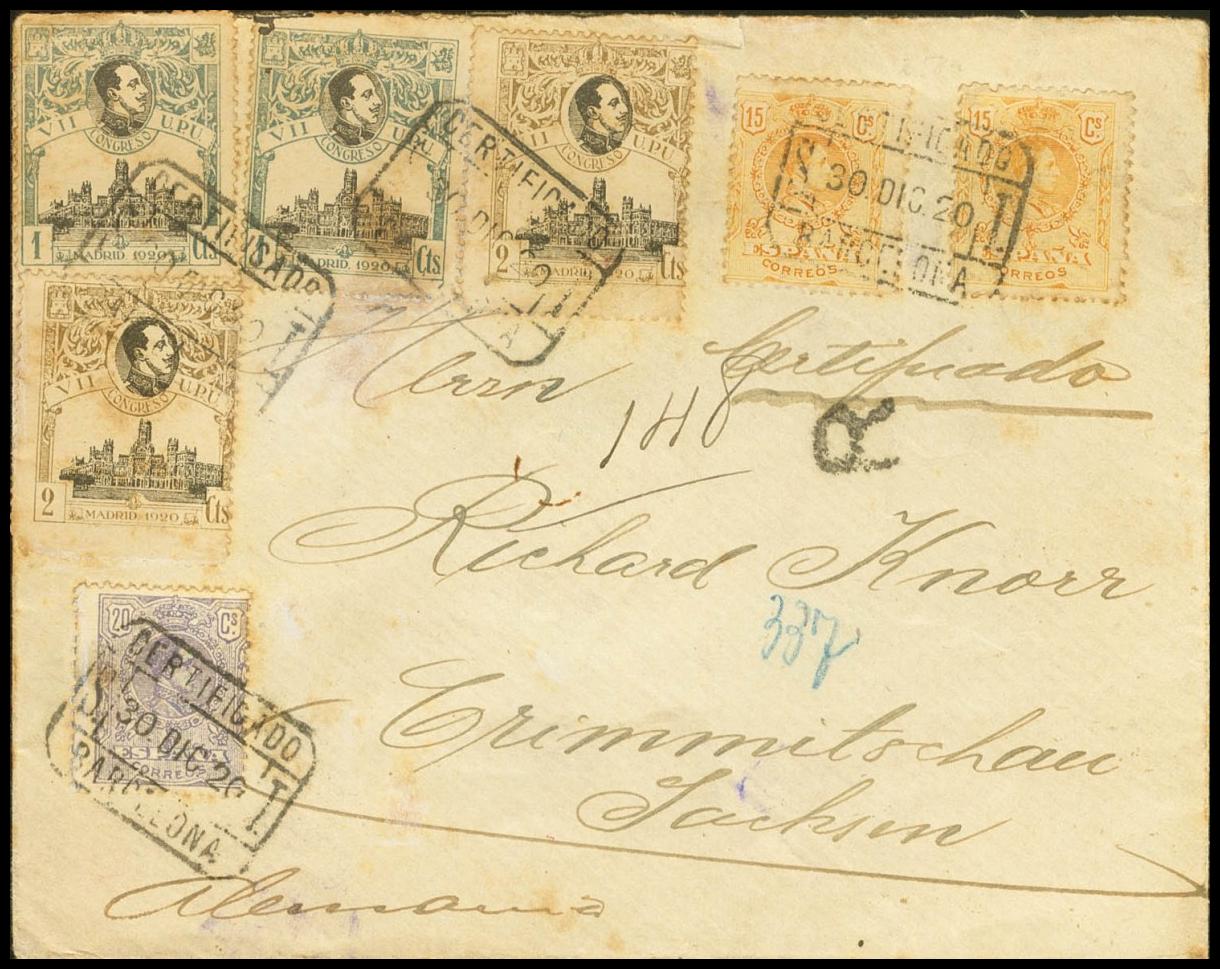 VII CONGRESO U.P.U.
1 MADRID 1920 Cts
VII CONGRESO U.P.U.
1 MADRID 1920 Cts
VII CONGRESO U.P.U.
2 MADRID 1920 Cts
15 Cs
ESPAÑA
CORREOS
15 Cs
ESPAÑA
CORREOS
CERTIFICADO
30 DIC. 20
BARCELONA
CERTIFICADO
CERTIFICADO
VII CONGRESO U.P.U.
2 MADRID 1920 Cts
Certificado
Herrn
148
R
Richard Knorr
337
Crimmitschau
Sachsen
20 Cs
ESPAÑA
CORREOS
CERTIFICADO
30 DIC 20
BARCELONA
Alemania